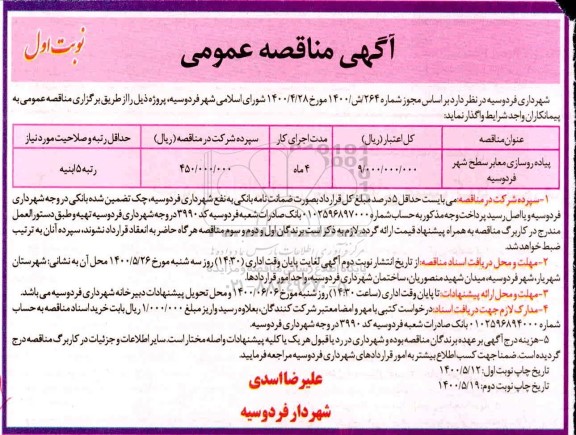 نوبت اول
آگهی مناقصه عمومی
شهرداری فردوسیه در نظر دارد بر اساس مجوز شماره ۲۶۴/ش/۱۴۰۰ مورخ ۱۴۰۰/۴/۲۸ شورای اسلامی شهر فردوسیه، پروژه ذیل را از طریق برگزاری مناقصه عمومی به
پیمانکاران واجد شرایط واگذار نماید:
عنوان مناقصه کل اعتبار (ریال) مدت اجرای کار سپرده شرکت در مناقصه (ریال) حداقل رتبه و صلاحیت مورد نیاز
پیاده روسازی معابر سطح شهر فردوسیه ۹/۰۰۰/۰۰۰/۰۰۰ ۴ ماه ۴۵۰/۰۰۰/۰۰۰ رتبه ۵ ابنیه
۱-سپرده شرکت در مناقصه: می بایست حداقل ۵ درصد مبلغ کل قرارداد بصورت ضمانت نامه بانکی به نفع شهرداری فردوسیه، چک تضمین شده بانکی در وجه شهرداری
فردوسیه و یا اصل رسید پرداخت وجه مذکور به حساب شماره ۰۱۰۲۵۹۶۸۹۷۰۰۰ بانک صادرات شعبه فردوسیه کد ۳۹۹۰ در وجه شهرداری فردوسیه تهیه و طبق دستورالعمل
مندرج در کاربرگ مناقصه به همراه پیشنهاد قیمت ارائه گردد. لازم به ذکر است برندگان اول و دوم و سوم مناقصه هرگاه حاضر به انعقاد قرارداد نشوند، سپرده آنان به ترتیب
ضبط خواهد شد.
۲-مهلت و محل دریافت اسناد مناقصه: از تاریخ انتشار نوبت دوم آگهی لغایت پایان وقت اداری (۱۴:۳۰) روز سه شنبه مورخ ۱۴۰۰/۵/۲۶ محل آن به نشانی: شهرستان
شهریار، شهر فردوسیه، میدان شهید منصوریان، ساختمان شهرداری فردوسیه واحد امور قراردادها.
۳-مهلت و محل ارائه پیشنهادات: تا پایان وقت اداری (ساعت ۱۴:۳۰) روز شنبه مورخ ۱۴۰۰/۰۶/۰۶ و محل تحویل پیشنهادات دبیرخانه شهرداری فردوسیه می باشد.
۴-مدارک لازم جهت دریافت اسناد: درخواست کتبی با مهر و امضا معتبر شرکت کنندگان، بعلاوه رسید واریز مبلغ ۱/۰۰۰/۰۰۰ ریال بابت خرید اسناد مناقصه به حساب
شماره ۰۱۰۲۵۹۶۸۹۴۰۰۰ بانک صادرات شعبه فردوسیه کد ۳۹۹۰ در وجه شهرداری فردوسیه.
۵-هزینه درج آگهی بر عهده برندگان مناقصه بوده و شهرداری در رد یا قبول هر یک یا کلیه پیشنهادات واصله مختار است. سایر اطلاعات و جزئیات در کاربرگ مناقصه درج
گردیده است. ضمنا جهت کسب اطلاع بیشتر به امور قراردادهای شهرداری فردوسیه مراجعه فرمایید.
تاریخ چاپ نوبت اول: ۱۴۰۰/۵/۱۲
تاریخ چاپ نوبت دوم: ۱۴۰۰/۵/۱۹
علیرضا اسدی
شهردار فردوسیه